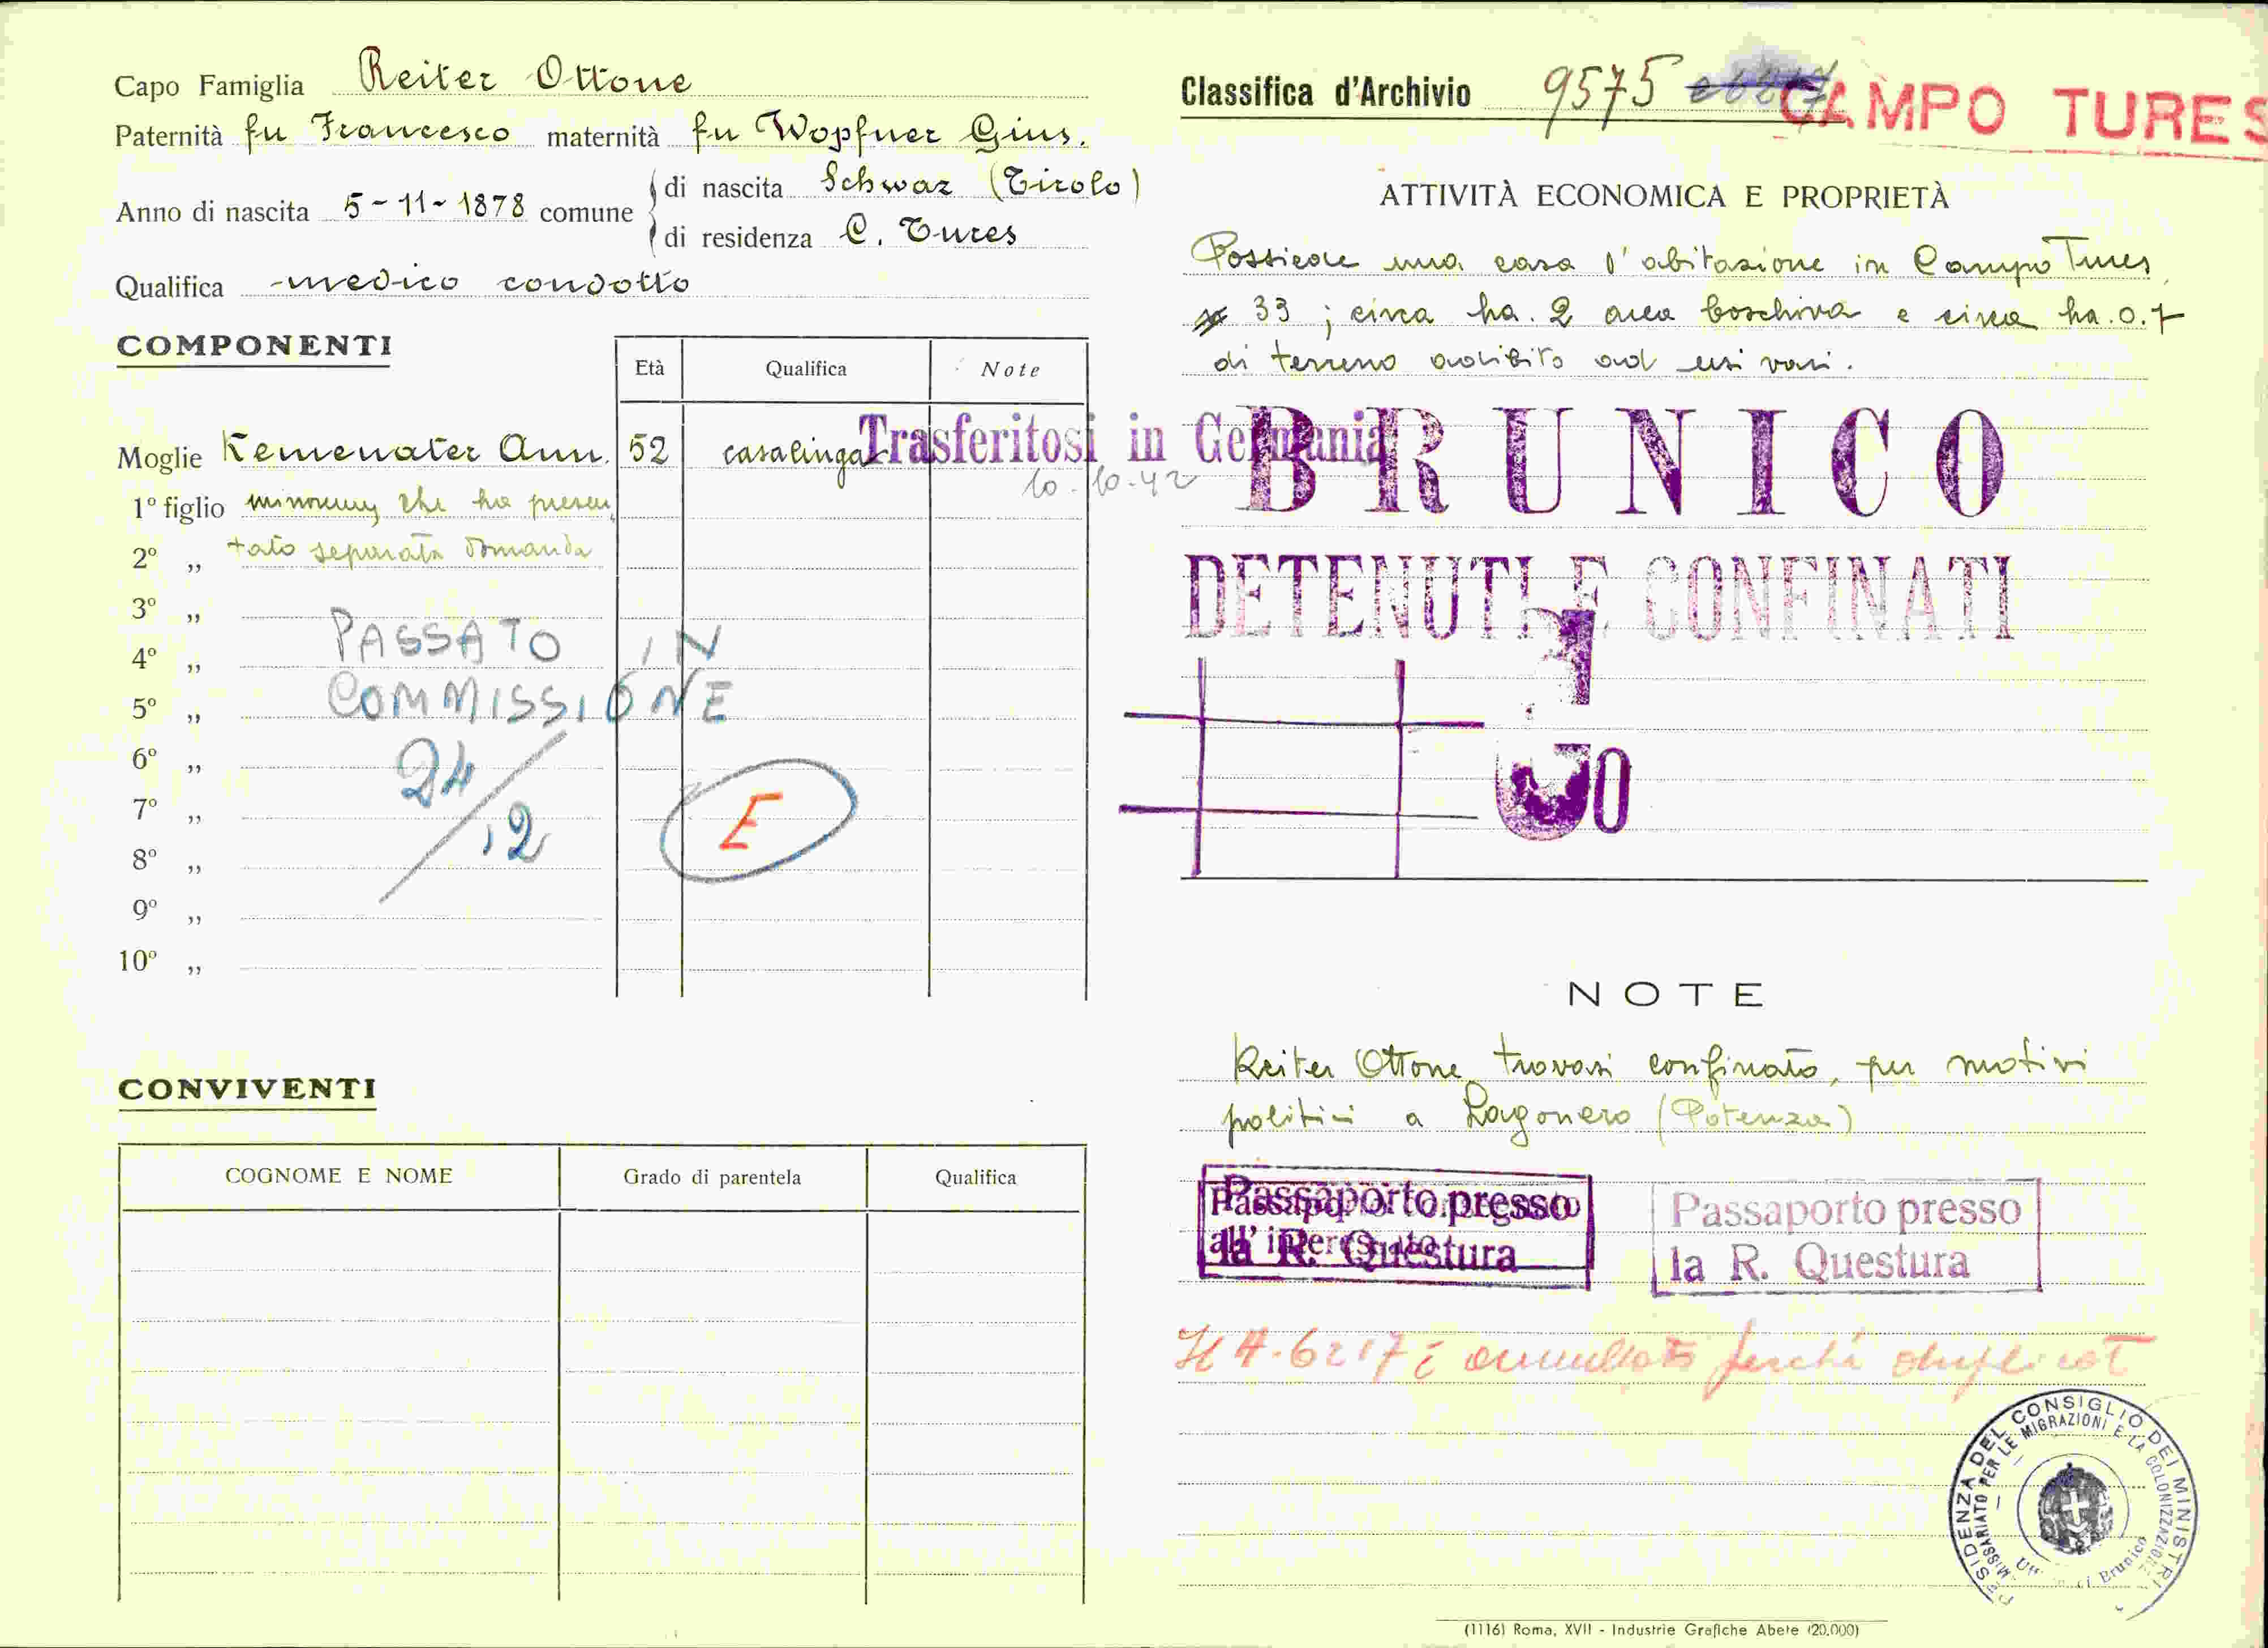 Capo Famiglia Reiter Ottone
Paternità fu Francesco maternità fu Wopfner Gius.
Anno di nascita 5-11-1878 comune di nascita Schwaz (Tirolo)
di residenza C. Tures
Qualifica medico condotto
COMPONENTI
Età Qualifica Note
Moglie Kemenater Ann. 52 casalinga
Trasferitosi in Germania
10-10-42
1º figlio minorenne che ha presen
2º „ tato separata domanda
3º „
4º „
5º „
6º „
7º „
8º „
9º „
10º „
PASSATO IN
COMMISSIONE
24/12
E
CONVIVENTI
COGNOME E NOME Grado di parentela Qualifica
Classifica d'Archivio 9575
CAMPO TURES
ATTIVITÀ ECONOMICA E PROPRIETÀ
Possiede una casa d'abitazione in Campo Tures
33; circa ha. 2 area boschiva e circa ha. 0.7
di terreno adibito ad usi vari.
BRUNICO
DETENUTI E CONFINATI
NOTE
Reiter Ottone trovasi confinato, per motivi
politici a Lagonero (Potenza)
Passaporto presso
la R. Questura
Passaporto presso
la R. Questura
Il 4.6217 è annullato perché duplicat
PRESIDENZA DEL CONSIGLIO DEI MINISTRI
COMMISSARIATO PER LE MIGRAZIONI E LA COLONIZZAZIONE
Brunico
(1116) Roma, XVII - Industrie Grafiche Abete (20.000)